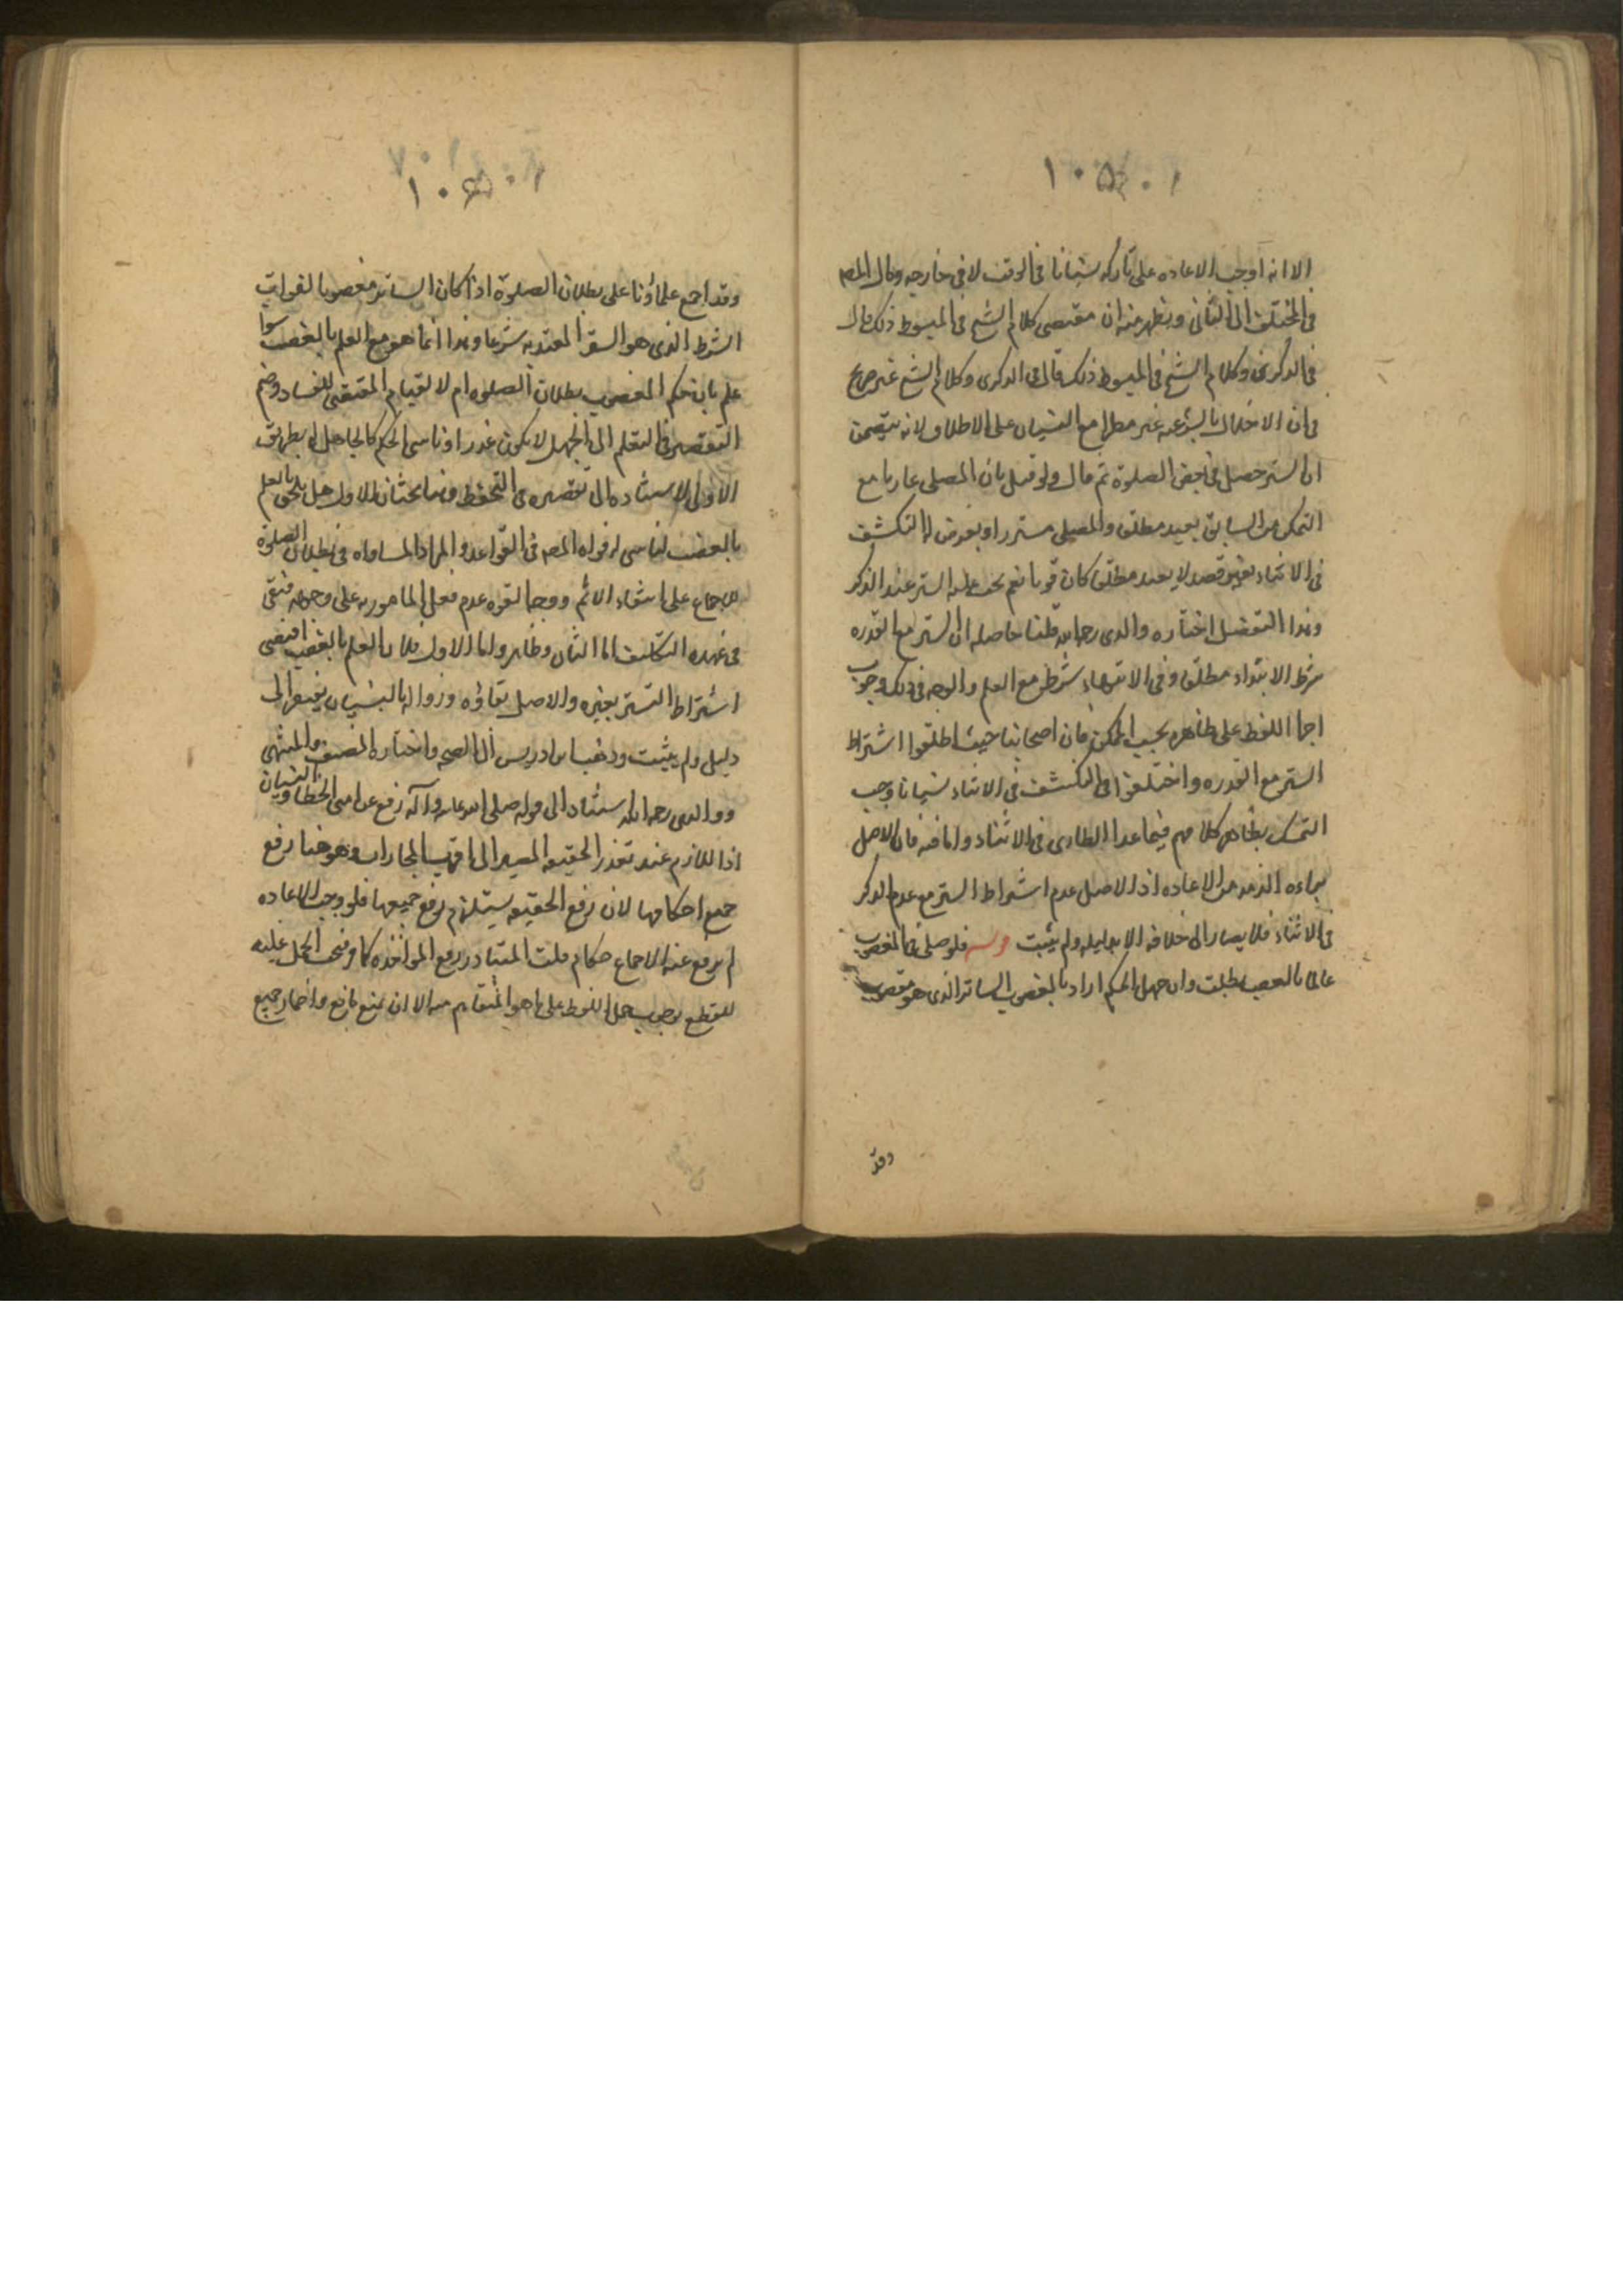 ١٠٥
الا انه اوجب الاعاده على تاركه نسيانا فى الوقت لا فى خارجه ومال المص
فى المختلف الى الثانى ويظهر منه ان مقتضى كلام الشيخ فى المبسوط ذلك قال
فى الذكرى وكلام الشيخ فى المبسوط ذلك قال فى الذكرى وكلام الشيخ غير صريح
فى ان الاخلال بالشرعيه غير مبطل مع النسيان على الاطلاق لانه يتضمن
ان الستر حصل فى بعض الصلوة ثم قال ولو قيل بان المصلى عاريا مع
التمكن من الساتر يعيد مطلقا والمصلى مستترا ويعرض له التكشف
فى الاثناء بغير قصد لا يعيد مطلقا كان قويا نعم يجب عليه الستر عند الذكر
وهذا التفصيل اختاره والدى رحمه الله قلنا حاصله ان الستر مع القدره
شرط الابتداء مطلقا وفى الانتهاء شرط مع العلم والوجه فى ذلك وجوب
اجرا اللفظ على ظاهره بحسب الممكن فان اصحابنا حيث اطلقوا اشتراط
الستر مع القدره واختلفوا فى التكشف فى الاثناء نسيانا وجب
التمسك بظاهر كلامهم فيما عدا الطارى فى الاثناء واما فيه فان الاصل
براءه الذمه من الاعاده اذ الاصل عدم اشتراط الستر مع عدم الذكر
فى الاثناء فلا يصار الى خلافه الا بدليل ولم يثبت قوله فلو صلى فى المغصوب
عالما بالغصب بطلت وان جهل الحكم اراد بالمغصوب الساتر الذى هو مغصوب
وقد
١٠٦
وقد اجمع علماؤنا على بطلان الصلوة اذا كان الساتر مغصوبا لفوات
الشرط الذى هو الستر المعتد به شرعا وهذا انما هو مع العلم بالغصب سوا
علم بان حكم المغصوب بطلان الصلوه ام لا لقيام المقتضى للفساد وضم
التقصير فى التعلم الى الجهل لا يكون عذرا وناسى الحكم كالجاهل به بطريق
الاولى لاستناده الى تقصيره فى التحفظ وهنا بحثان الاول هل يلحق بالعلم
بالغصب ناسى له قواه المص فى القواعد والمراد المساواه فى بطلان الصلوة
للاجماع على انتفاء الاثم ووجه القوه عدم فعل المامور به على وجهه فيبقى
فى عهده التكليف اما الثانى فظاهر واما الاول فلان العلم بالغصب اقتضى
اشتراط التستر بغيره والاصل بقاؤه وزواله بالنسيان يفتقر الى
دليل ولم يثبت وذهب ابن ادريس الى الصحه واختاره المصنف فى المنتهى
ووالدى رحمه الله استنادا الى قوله صلى الله عليه وآله رفع عن امتى الخطا والنسيان
اذ اللازم عند تعذر الحقيقه المصير الى اقرب المجازات وهو هنا رفع
جميع احكامها لان رفع الحقيقه يستلزم رفع جميعها فلو وجبت الاعاده
لم يرفع عنه الاجماع حكام قلت المتبادر رفع المواخذه كما فى نحب الحمل عليه
للقطع بوجوب حمل اللفظ على ما هو المتفاهم منه الا ان يمنع مانع واضمار جميع